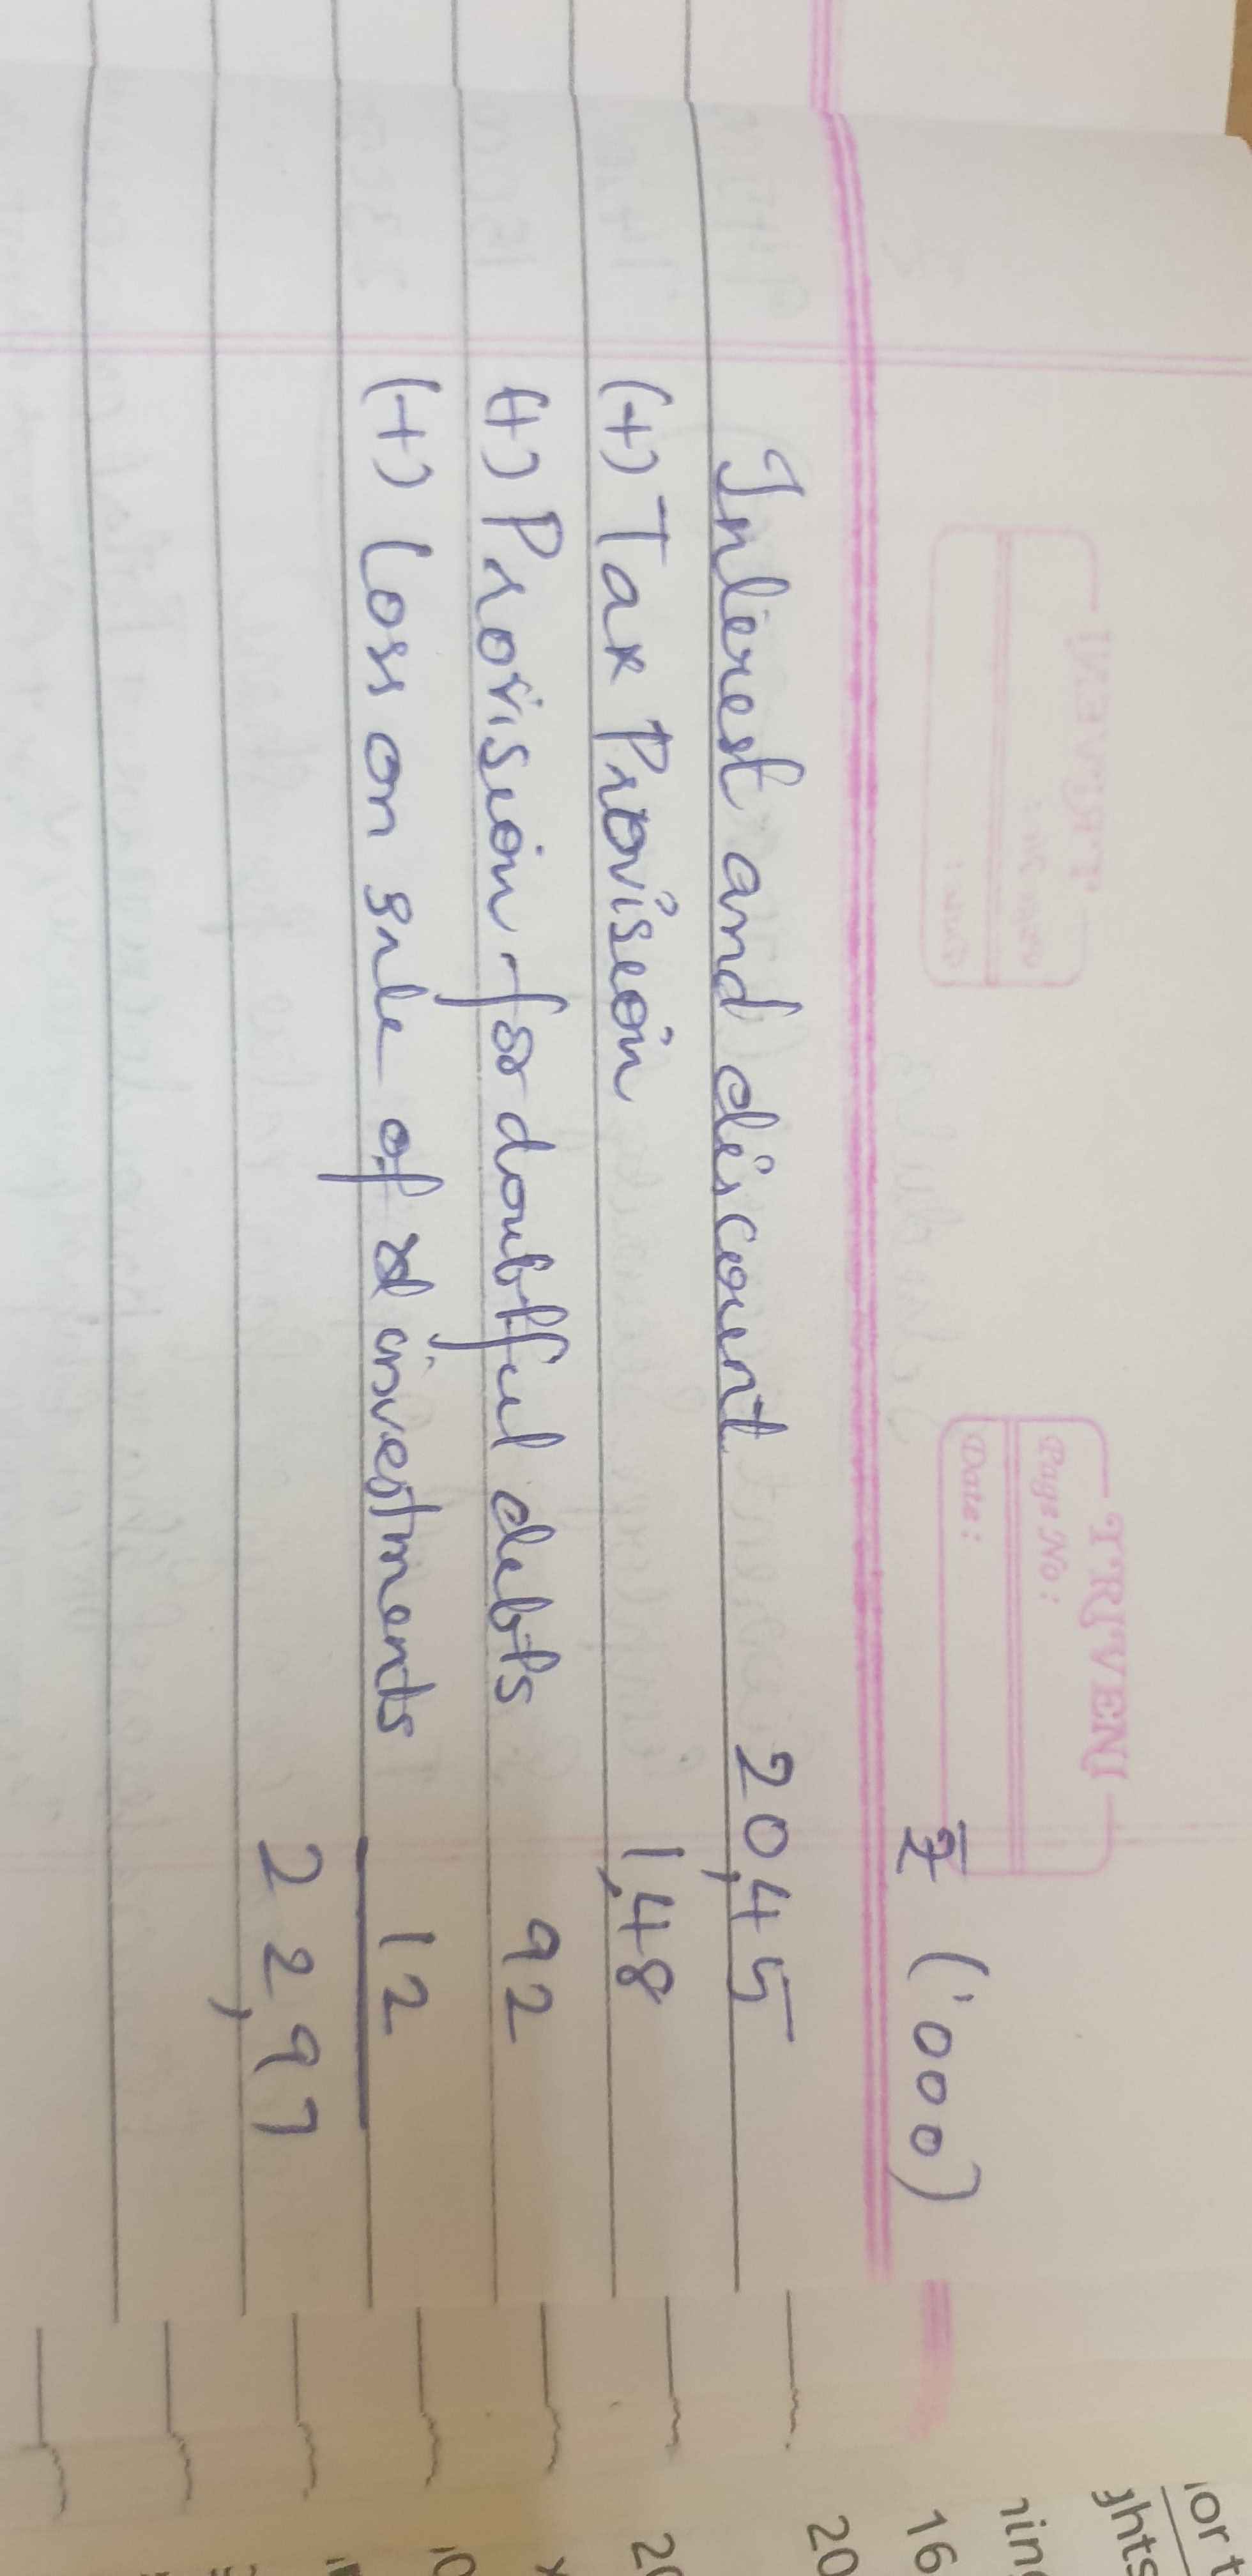 TRIVENI
Page No:
Date:
₹ ('000)
Interest and discount 20,45
(+) Tax Provision 1,48
(+) Provision for doubtful debts 92
(+) Loss on sale of investments 12
22,97
16
20